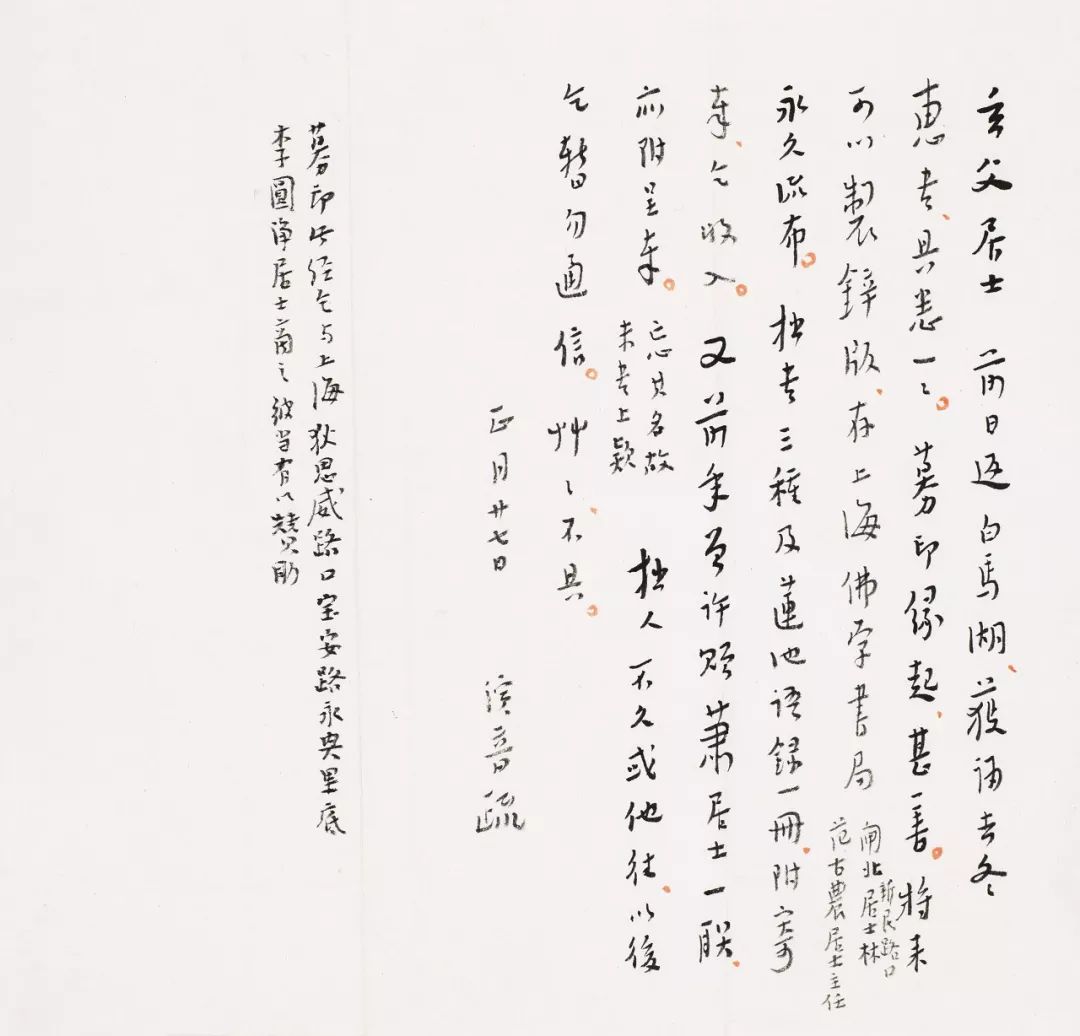 玄父居士 前日返白馬湖、獲誦去冬
惠書、具悉一〻。募印緣起、甚善。將来
可以製鋅版、存上海佛学書局
閘北新民路口
居士林
范古農居士主任
永久流布。拙書三種及蓮池語録一冊、附寄
奉、乞收入。又前年曾許贈蕭居士一聯、
亦附呈奉。
忘其名故
未書上款
拙人不久或他往、以後
乞暫勿通信。艸〻、不具。
正月廿七日
演音疏
募印此经乞与上海狄思威路口宝安路永興里底
李圓淨居士商之彼当有以贊助